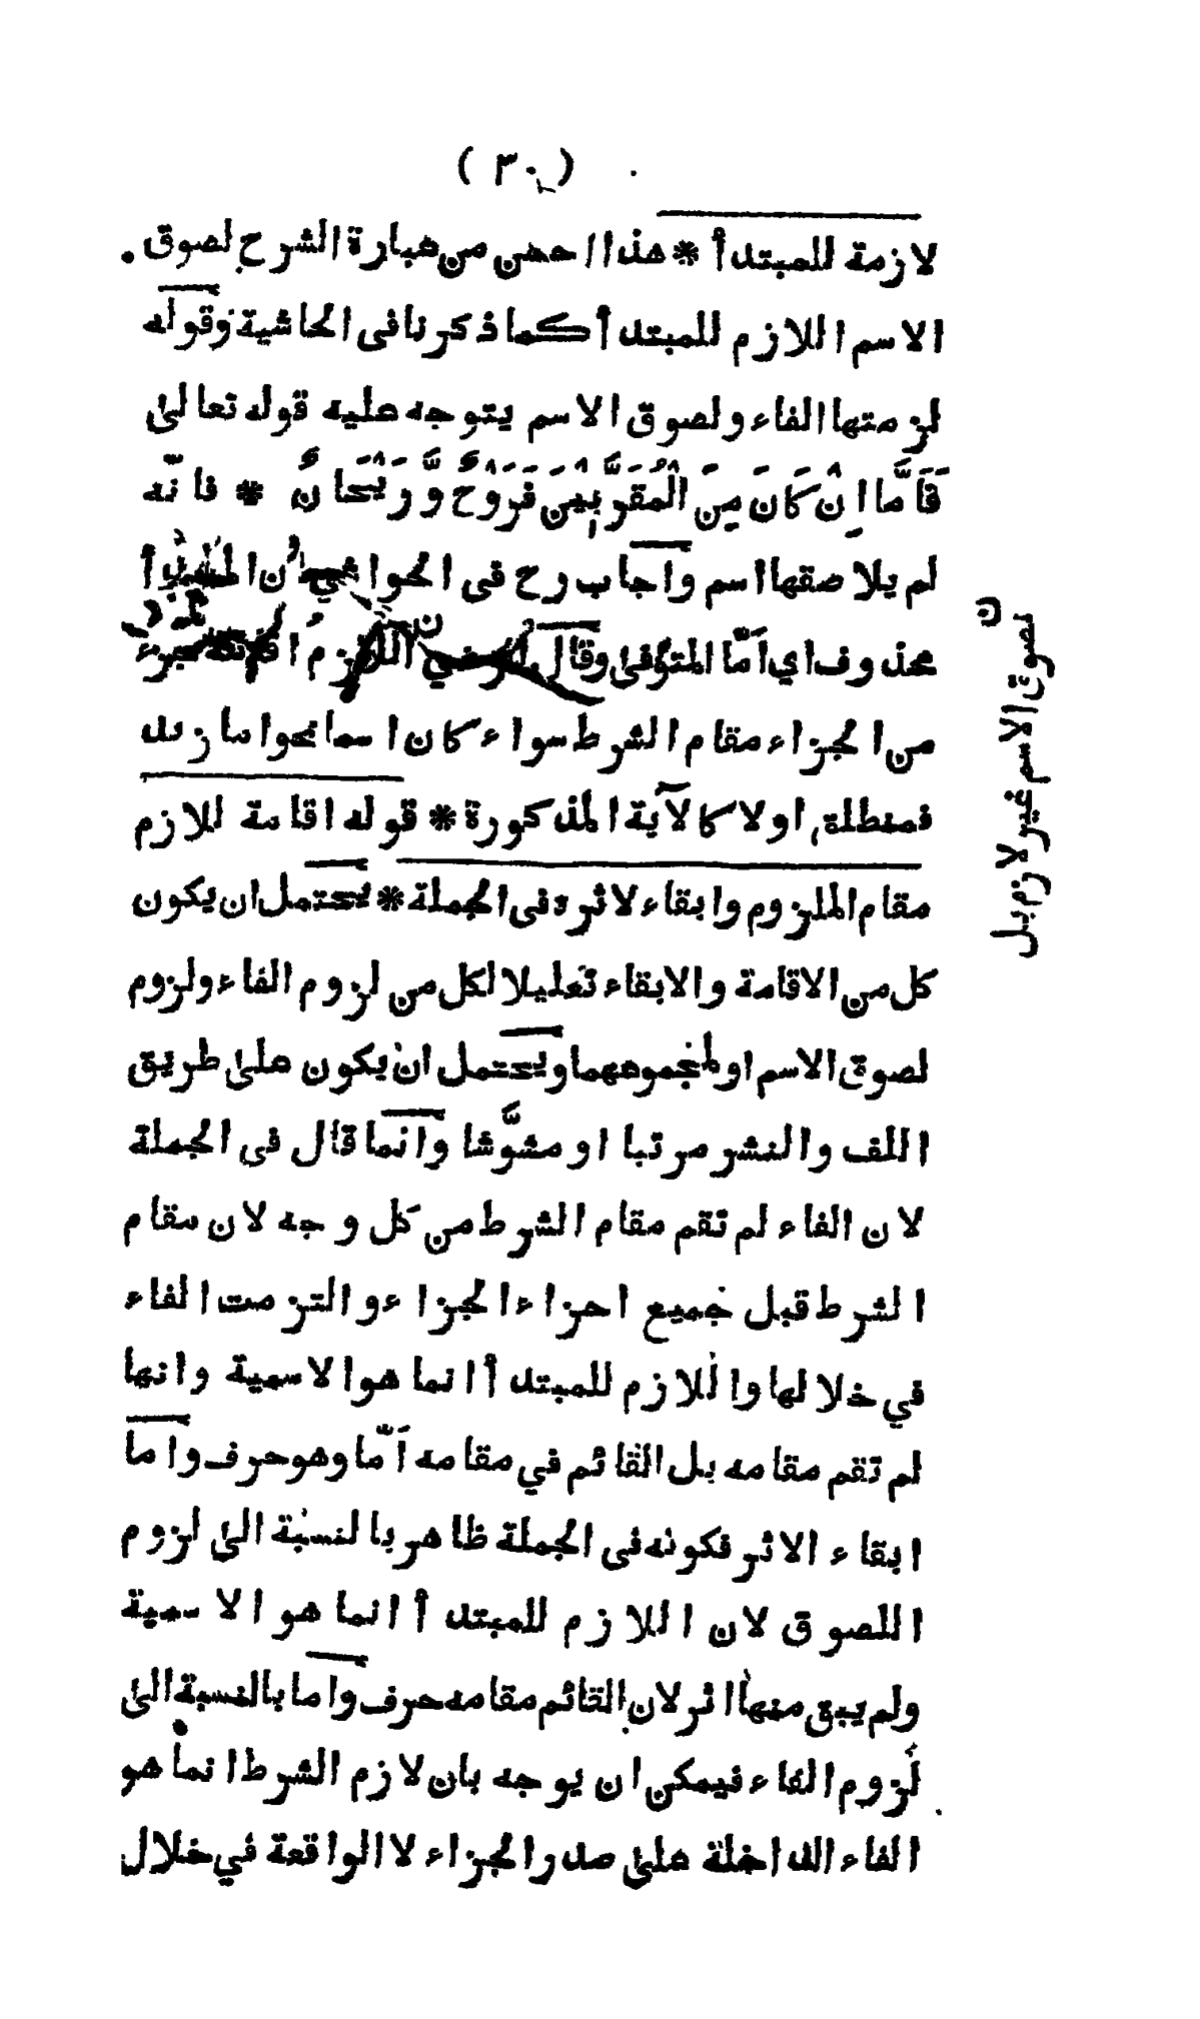 ( ٣٠ )
لازمة للمبتدأ * هذا احسن من عبارة الشرح لصوق
الاسم اللازم للمبتدأ كما ذكرنا فى الحاشية وقوله
لزمتها الفاء ولصوق الاسم يتوجه عليه قوله تعالىٰ
فَاَمَّا اِنْ كَانَ مِنَ الْمُقَرَّبِيْنَ فَرَوْحٌ وَّرَيْحَانٌ * فانّه
لم يلاصقها اسم واجاب رح فى الحواشي ان المبتدأ
محذوف اي اَمّا المتوفىٰ وقال اللازم اقامة جزء
من الجزاء مقام الشرط سواء كان اسما نحواما زيد
فمنطلق اولا كالآية المذكورة * قوله اقامة للازم
مقام الملزوم وابقاء لاثره فى الجملة * يحتمل ان يكون
كل من الاقامة والابقاء تعليلا لكل من لزوم الفاء ولزوم
لصوق الاسم اولمجموعهما ويحتمل ان يكون علىٰ طريق
اللف والنشر مرتبا او مشوَّشا وانما قال فى الجملة
لان الفاء لم تقم مقام الشرط من كل وجه لان مقام
الشرط قبل جميع اجزاء الجزاء والتزمت الفاء
في خلالها واللازم للمبتدأ انما هوالاسمية وانها
لم تقم مقامه بل القائم في مقامه اَمّا وهو حرف واما
ابقاء الاثر فكونه فى الجملة ظاهر بالنسبة الىٰ لزوم
اللصوق لان اللازم للمبتدأ انما هو الاسمية
ولم يبق منها اثر لان القائم مقامه حرف واما بالنسبة الىٰ
لزوم الفاء فيمكن ان يوجه بان لازم الشرط انما هو
الفاء الداخلة علىٰ صدر الجزاء لا الواقعة في خلال
ن
لصوق الاسم غير لازم بل